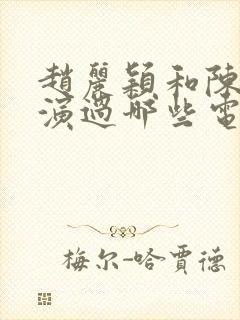 趙麗穎和陳
演過哪些電
梅尔-哈賈德